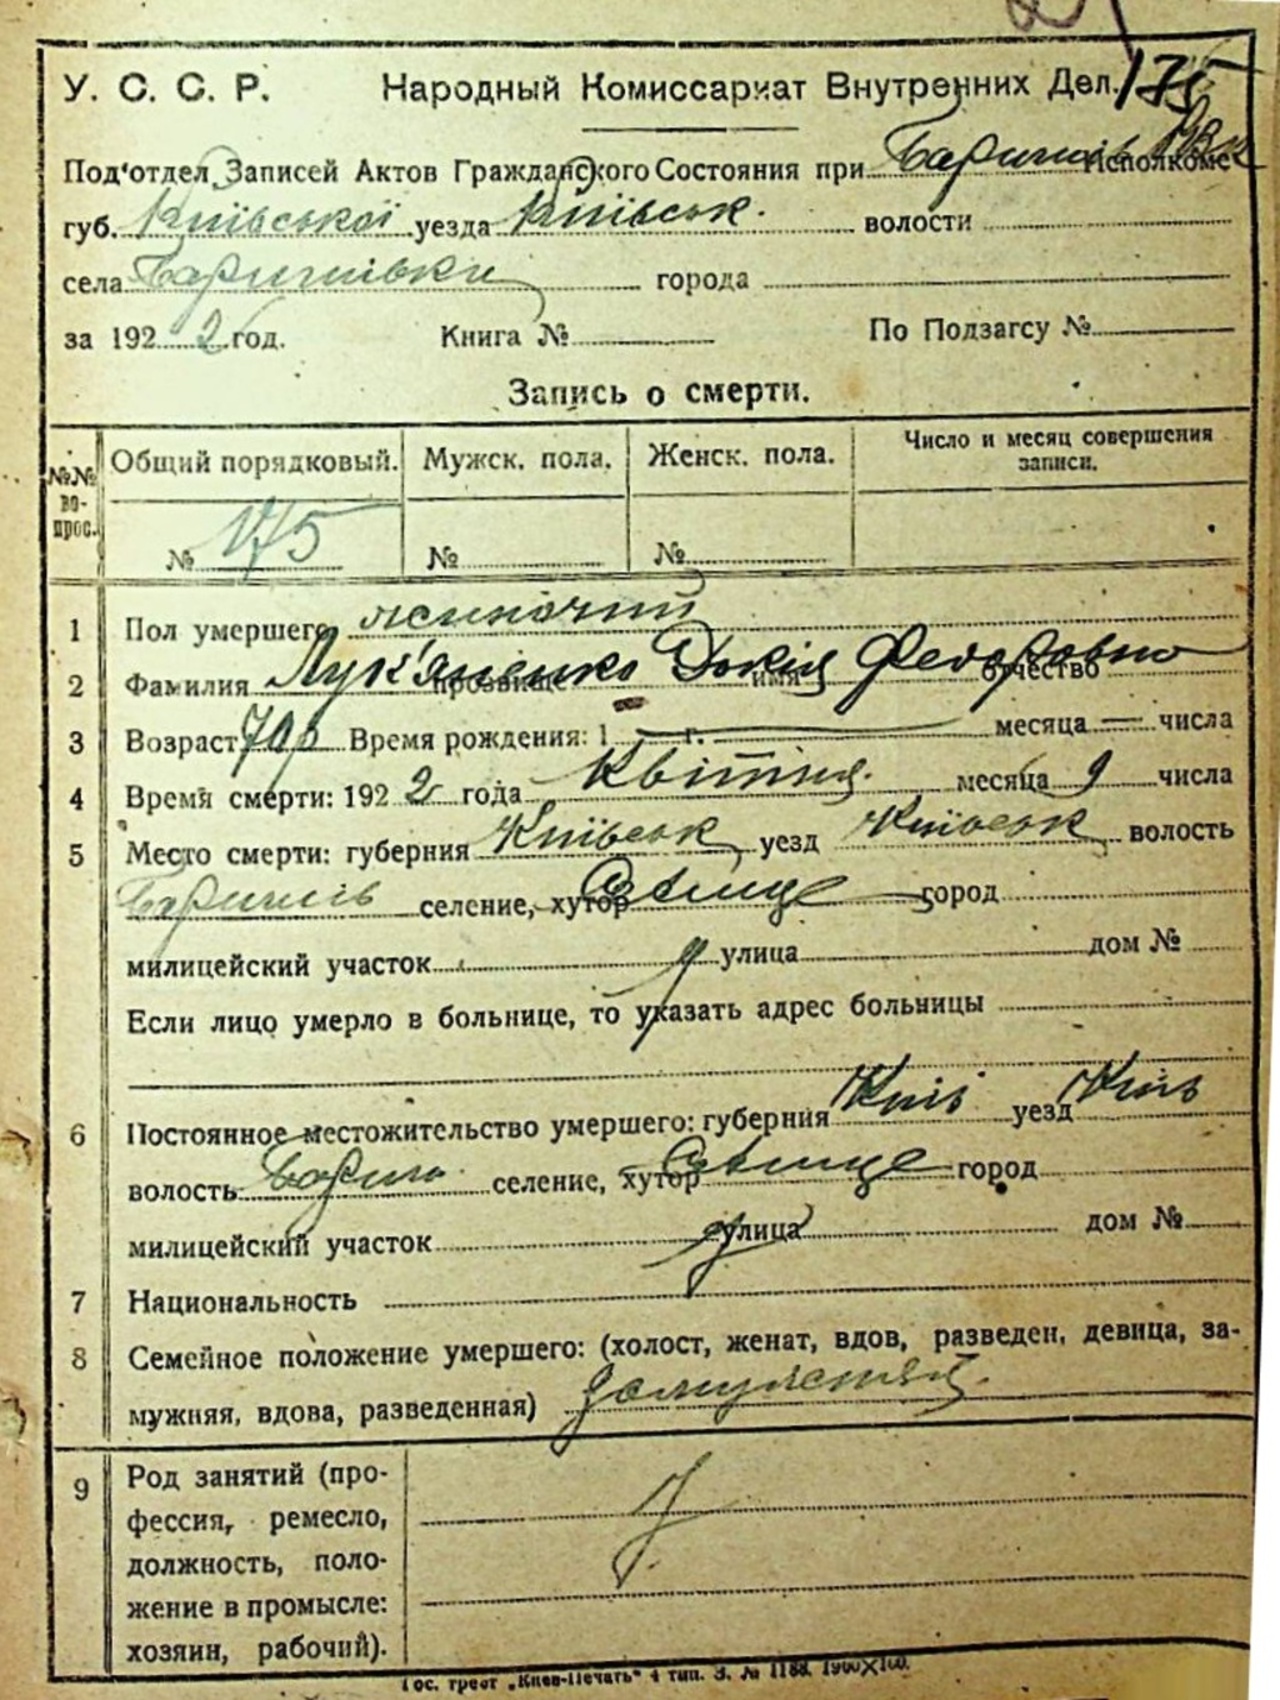 175
У. С. С. Р. Народный Комиссариат Внутренних Дел.
Под'отдел Записей Актов Гражданского Состояния при Баришів Исполкоме
губ. Київської уезда Київськ. волости
села Баришівки города
за 1922 год. Книга № По Подзагсу №
Запись о смерти.
№№ вопрос. Общий порядковый. Мужск. пола. Женск. пола. Число и месяц совершения записи.
№ 175 № №
1 Пол умершего жиночий
2 Фамилия Лук'яненко прозвище Докія имя Федоровно отчество
3 Возраст 70 р Время рождения: 1 — г. — месяца — числа
4 Время смерти: 1922 года Квітня. месяца 9 числа
5 Место смерти: губерния Київськ уезд Київськ волость
Баришів селение, хутор Селище город
милицейский участок улица дом №
Если лицо умерло в больнице, то указать адрес больницы
6 Постоянное местожительство умершего: губерния Київ уезд Київ
волость Бариш селение, хутор Селище город
милицейский участок улица дом №
7 Национальность
8 Семейное положение умершего: (холост, женат, вдов, разведен, девица, за-
мужняя, вдова, разведенная) замужняя.
9 Род занятий (про-
фессия, ремесло,
должность, поло-
жение в промысле:
хозяин, рабочий).
Гос. трест „Киев-Печать" 4 тип. З. № 1188. 1900×100.